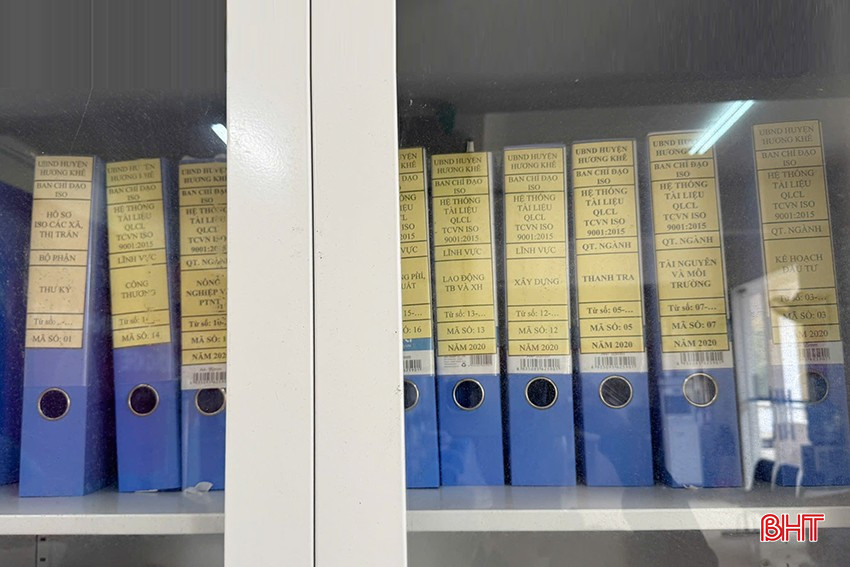 UBND HUYỆN
HƯƠNG KHÊ
BAN CHỈ ĐẠO
ISO
HỒ SƠ
ISO CÁC XÃ,
THỊ TRẤN
BỘ PHẬN
THƯ KÝ
Từ số:
MÃ SỐ: 01
UBND HUYỆN
HƯƠNG KHÊ
BAN CHỈ ĐẠO
ISO
HỆ THỐNG
TÀI LIỆU
QLCL
TCVN ISO
9001:2015
LĨNH VỰC
CÔNG
THƯƠNG
Từ số:
MÃ SỐ: 14
UBND HUYỆN
HƯƠNG KHÊ
BAN CHỈ ĐẠO
ISO
HỆ THỐNG
TÀI LIỆU
QLCL
TCVN ISO
9001:2015
LĨNH VỰC
NÔNG
NGHIỆP VÀ
PTNT
Từ số: 10-
MÃ SỐ: 1
NĂM 202
15-...
16
UBND HUYỆN
HƯƠNG KHÊ
BAN CHỈ ĐẠO
ISO
HỆ THỐNG
TÀI LIỆU
QLCL
TCVN ISO
9001:2015
LĨNH VỰC
LAO ĐỘNG
TB VÀ XH
Từ số: 13-...
MÃ SỐ: 13
NĂM 2020
UBND HUYỆN
HƯƠNG KHÊ
BAN CHỈ ĐẠO
ISO
HỆ THỐNG
TÀI LIỆU
QLCL
TCVN ISO
9001:2015
LĨNH VỰC
XÂY DỰNG
Từ số: 12-...
MÃ SỐ: 12
NĂM 2020
UBND HUYỆN
HƯƠNG KHÊ
BAN CHỈ ĐẠO
ISO
HỆ THỐNG
TÀI LIỆU
QLCL
TCVN ISO
9001:2015
QT. NGÀNH
THANH TRA
Từ số: 05-...
MÃ SỐ: 05
NĂM 2020
UBND HUYỆN
HƯƠNG KHÊ
BAN CHỈ ĐẠO
ISO
HỆ THỐNG
TÀI LIỆU
QLCL
TCVN ISO
9001:2015
QT. NGÀNH
TÀI NGUYÊN
VÀ MÔI
TRƯỜNG
Từ số: 07-...
MÃ SỐ: 07
NĂM 2020
UBND HUYỆN
HƯƠNG KHÊ
BAN CHỈ ĐẠO
ISO
HỆ THỐNG
TÀI LIỆU
QLCL
TCVN ISO
9001:2015
QT. NGÀNH
KẾ HOẠCH
ĐẦU TƯ
Từ số: 03-...
MÃ SỐ: 03
NĂM 2020
BHT